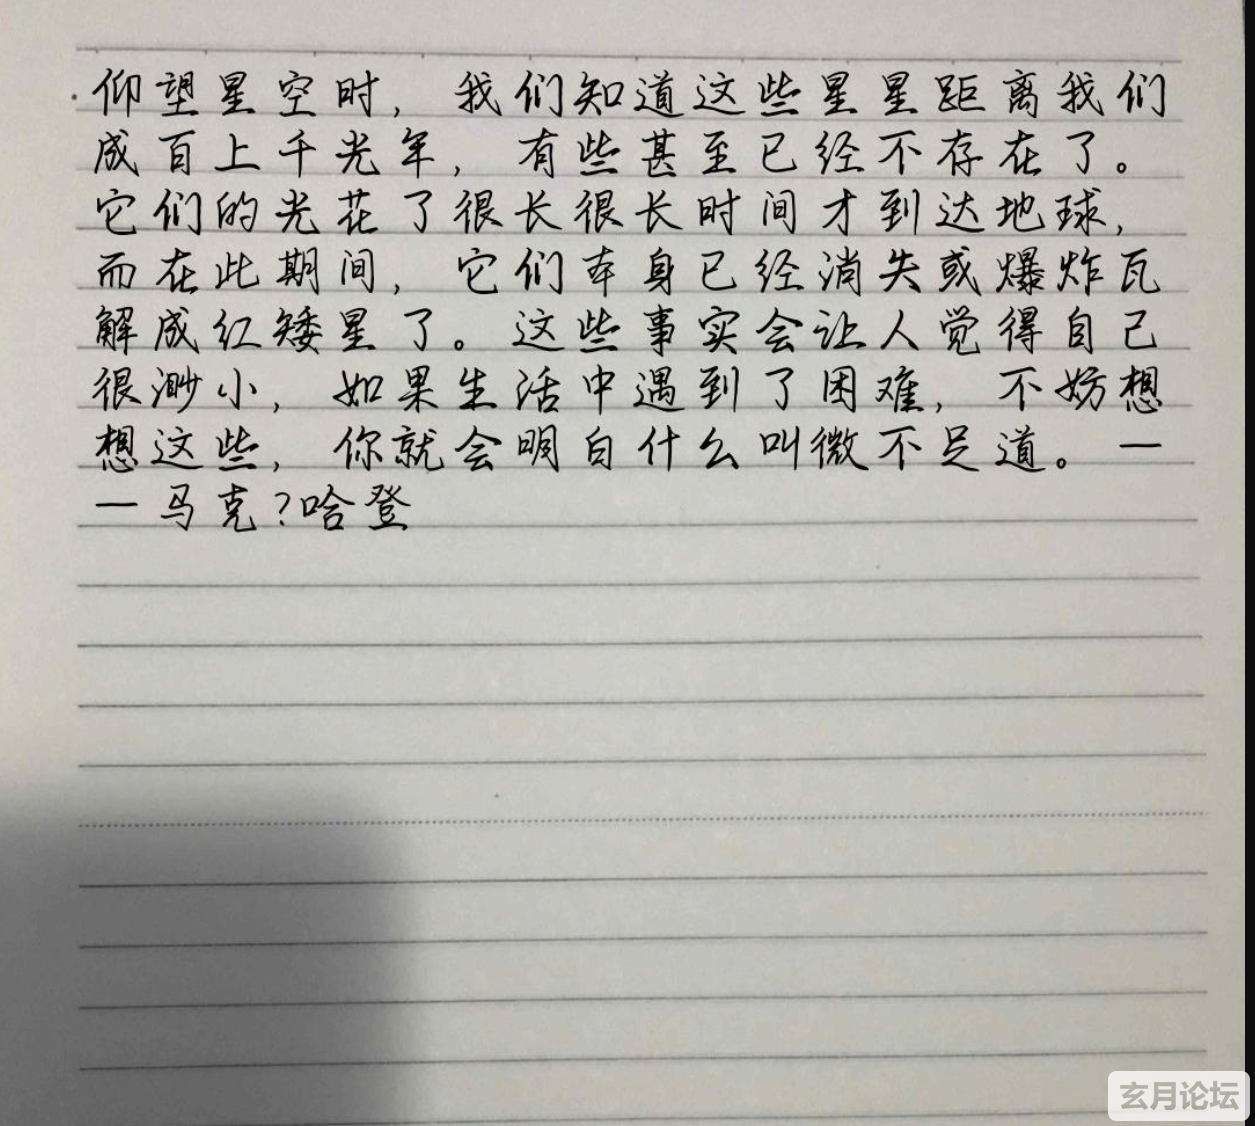 仰望星空时，我们知道这些星星距离我们
成百上千光年，有些甚至已经不存在了。
它们的光花了很长很长时间才到达地球，
而在此期间，它们本身已经消失或爆炸瓦
解成红矮星了。这些事实会让人觉得自己
很渺小，如果生活中遇到了困难，不妨想
想这些，你就会明白什么叫微不足道。—
—马克?哈登
玄月论坛